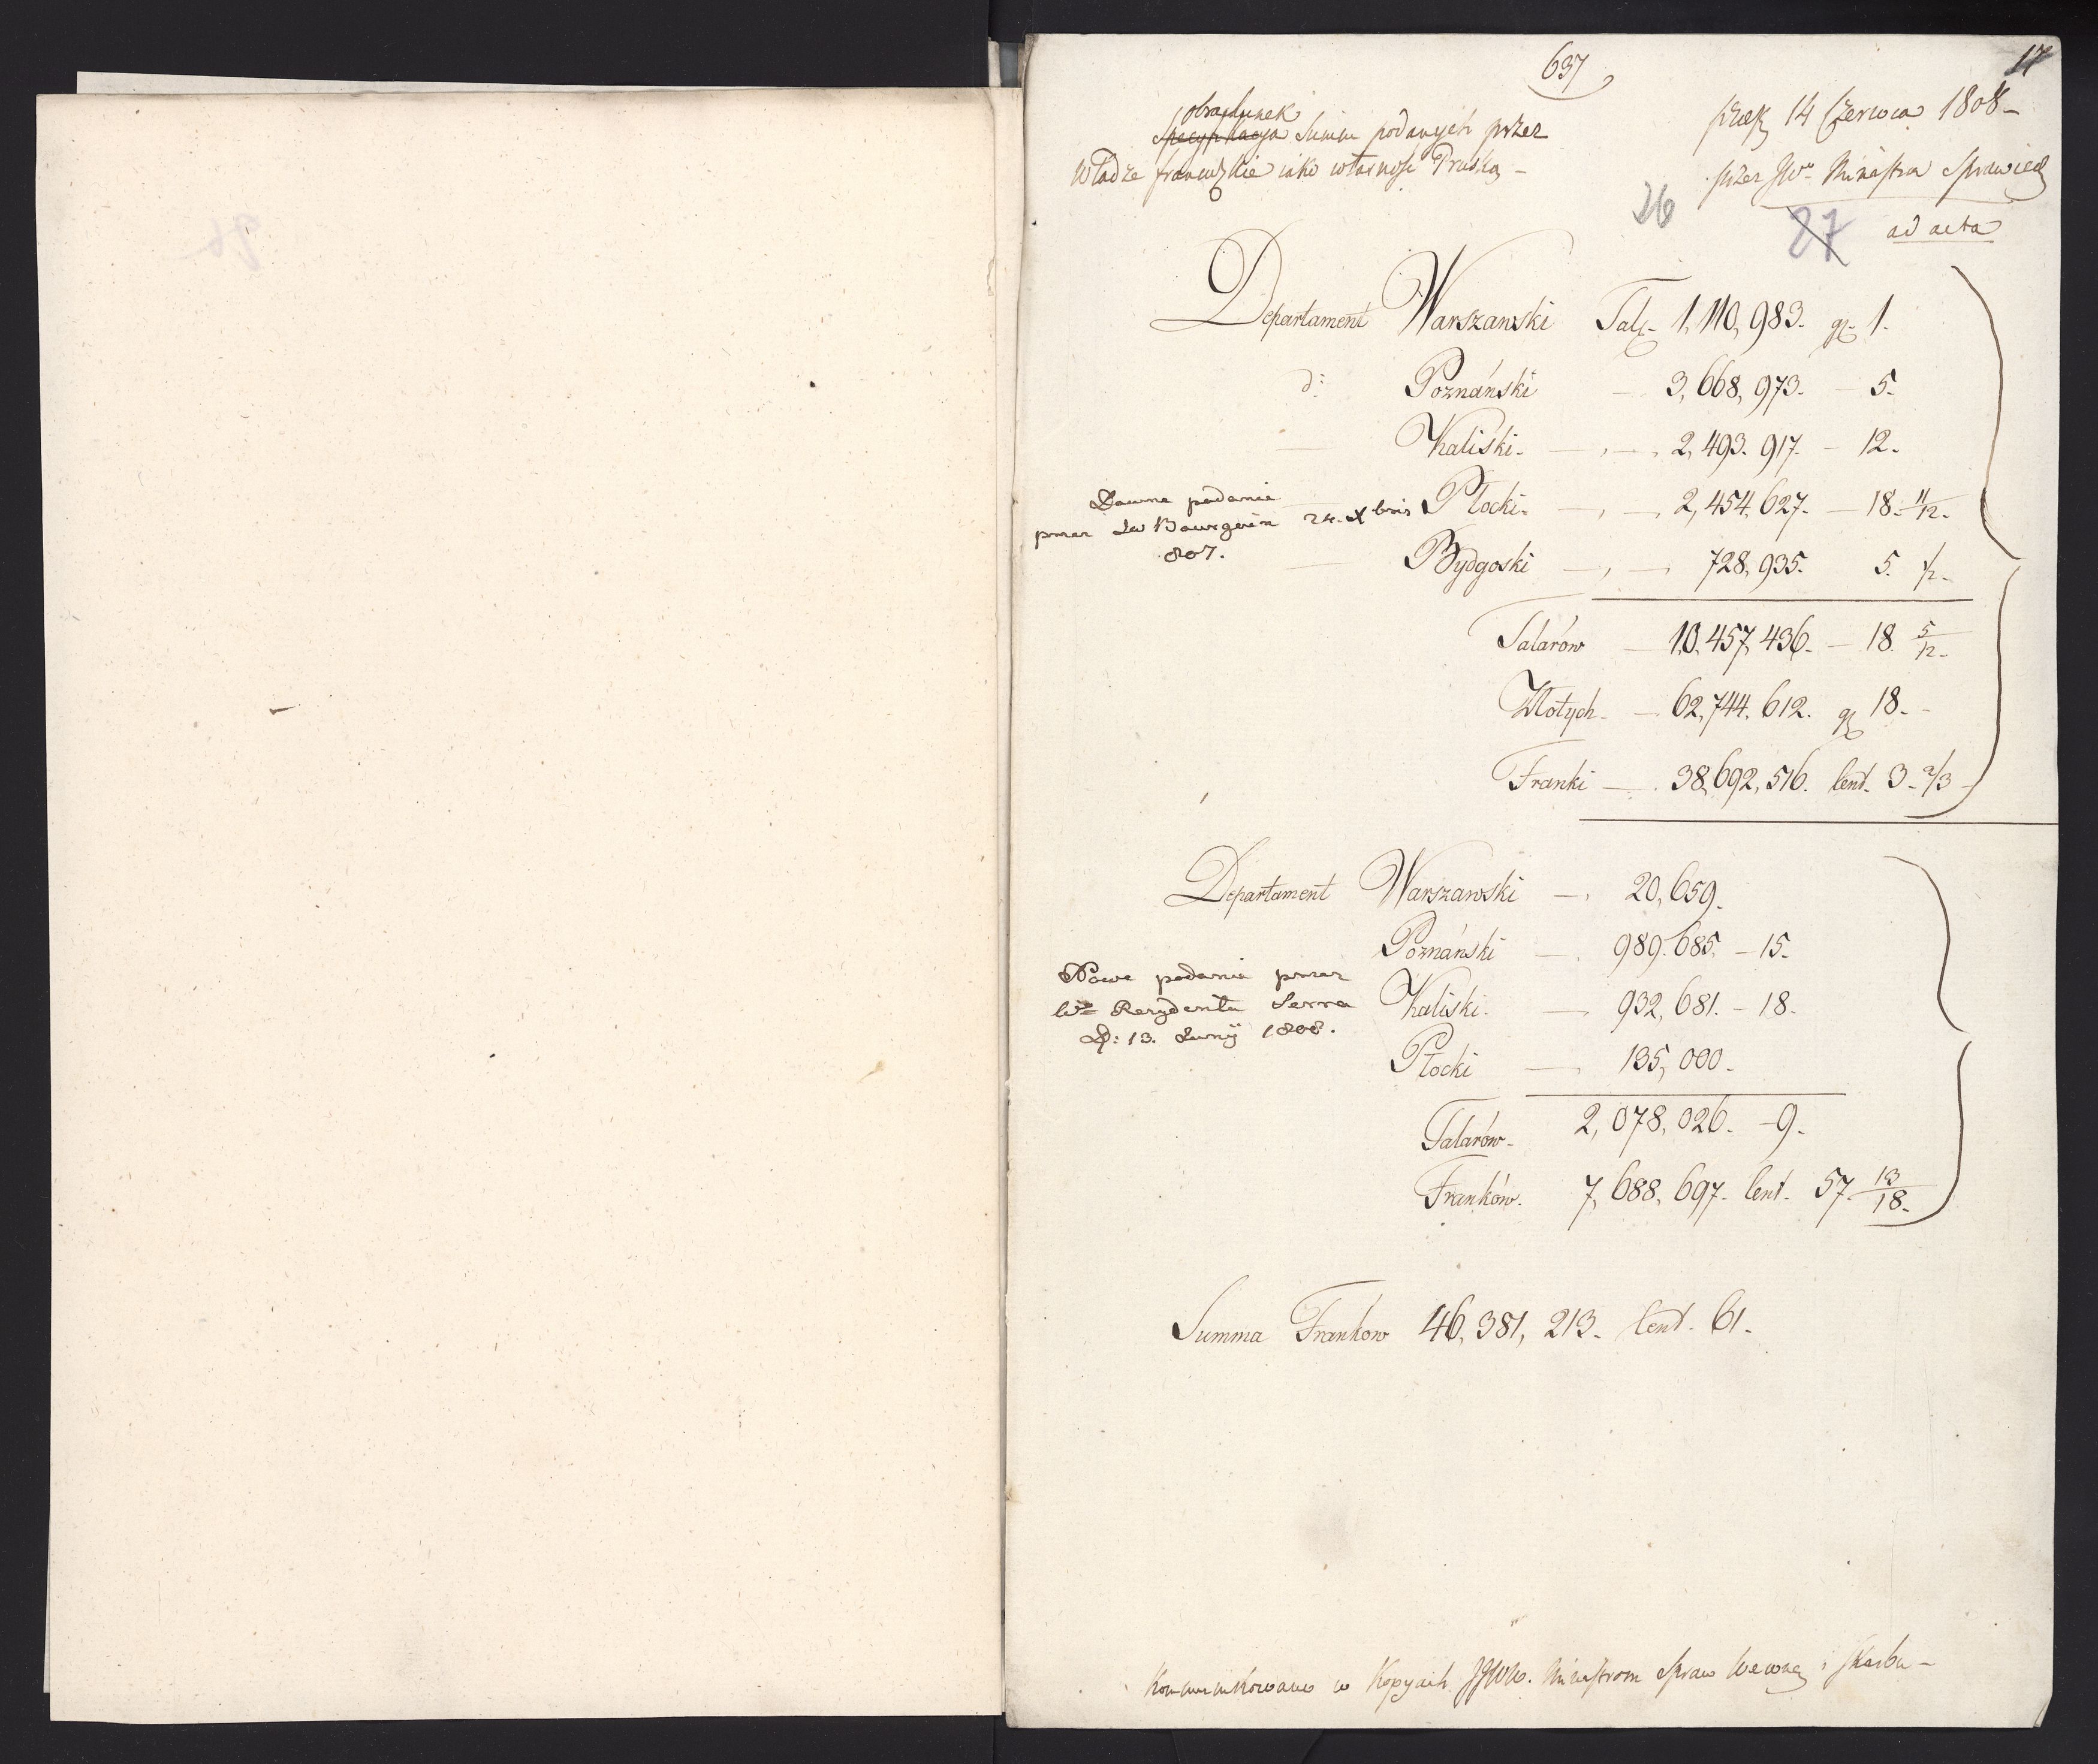 637
17
obrachunek
Specyfikacya Summ podanych przez
Władze francuzkie iako własność Pruską -
prez: 14 Czerwca 1808 -
przez JW. Ministra Sprawied:
ad acta
26
27
Departament Warszawski Tal: 1,110,983. gr: 1.
d: Poznański — 3,668,973. — 5.
— Kaliski. — 2,493.917. — 12.
— Płocki. — 2,454,627. — 18. 11/12.
— Bydgoski — 728,935. 5. 1/2.
Dawne podanie
przez Bourgoin 24. Xbris
807.
Talarów — 10,457,436. — 18. 5/12.
Złotych — 62,744,612. gr 18.
Franki — 38,692,516. Cent. 3. 2/3
Departament Warszawski — 20,659.
Poznański — 989.685. — 15.
Kaliski. — 932,681. — 18.
Płocki — 135,000.
Nowe podanie przez
Rezydenta Serra
D: 13. Juny 1808.
Talarów. 2,078,026. — 9.
Franków. 7,688,697. Cent. 57. 13/18.
Summa Frankow 46,381,213. Cent. 61.
Kommunikowano w Kopyach JJWW. Ministrom Spraw Wewnę: i Skarbu -